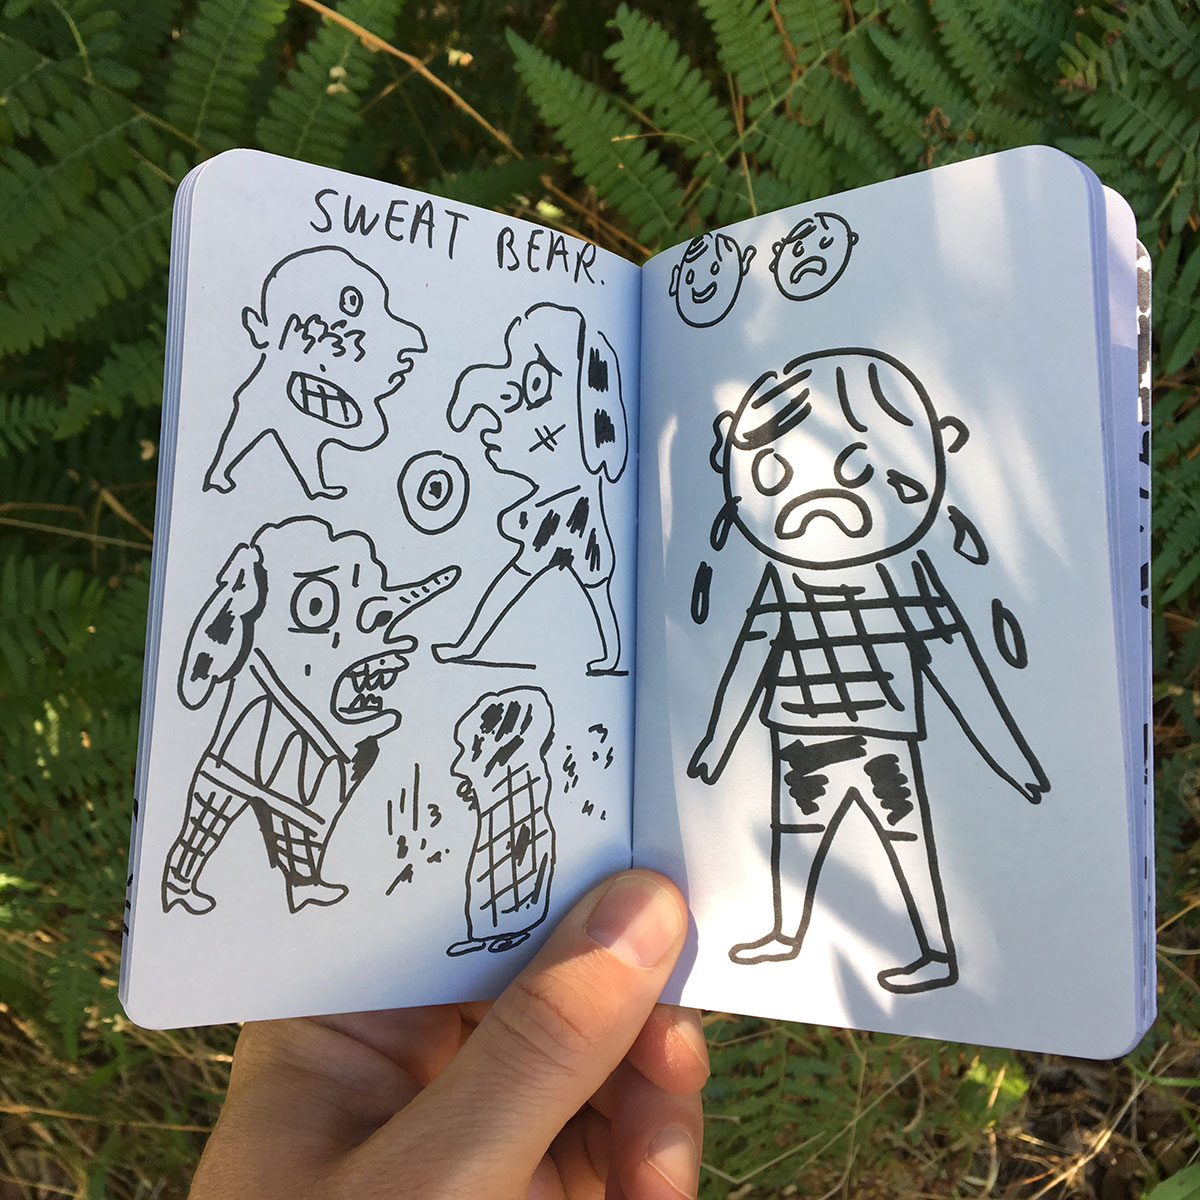 SWEAT BEAR.